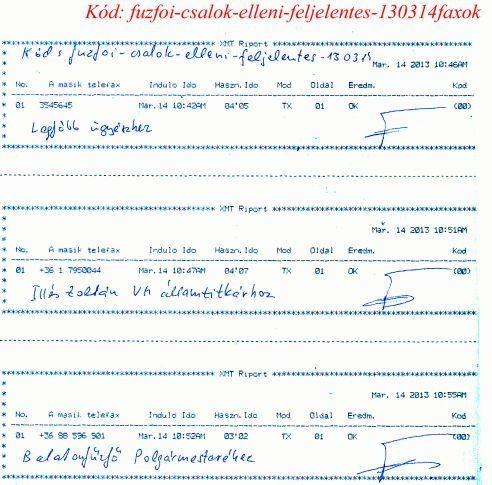 Kód: fuzfoi-csalok-elleni-feljelentes-130314faxok
XMT Riport
Kód: fuzfoi-csalok-elleni-feljelentes-130314
Mar. 14 2013 10:46AM
No. A masik telefax Indulo Ido Haszn.Ido Mod Oldal Eredm. Kod
01 3545645 Mar.14 10:42AM 04'05 TX 01 OK (00)
Legfőbb ügyészhez
XMT Riport
Mar. 14 2013 10:51AM
No. A masik telefax Indulo Ido Haszn.Ido Mod Oldal Eredm. Kod
01 +36 1 7950044 Mar.14 10:47AM 04'07 TX 01 OK (00)
Illés Zoltán VM államtitkárhoz
XMT Riport
Mar. 14 2013 10:55AM
No. A masik telefax Indulo Ido Haszn.Ido Mod Oldal Eredm. Kod
01 +36 88 596 901 Mar.14 10:52AM 03'02 TX 01 OK (00)
Balatonfűzfő Polgármesteréhez